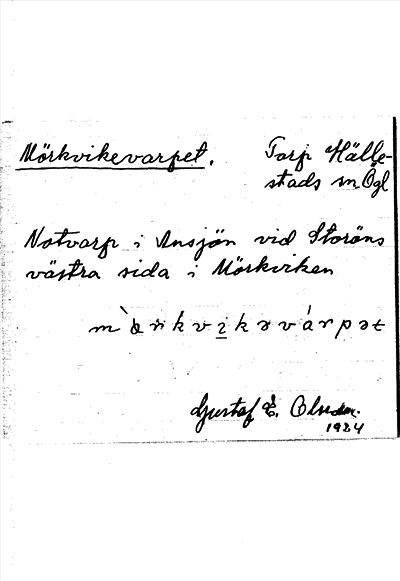 Mörkvikevarpet. Torp Hälle-
stads sn Ögl
Notvarp i Ansjön vid Storöns
västra sida i Mörkviken
Gustaf E. Olsson.
1934